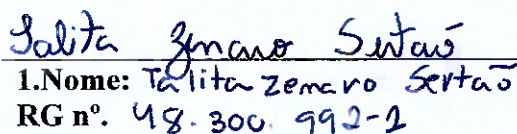 Talita Zenaro Sertaõ
1.Nome: Talita Zenaro Sertaõ
RG nº. 48.300.992-1